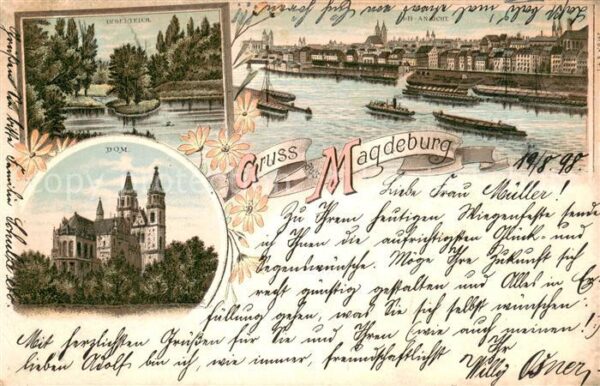 INSELTEICH.
GES. ANSICHT.
DOM.
Gruss
Magdeburg
19/8 98.
Liebe Frau Müller!
Zu Ihrem heutigen Wiegenfeste sende
ich Ihnen die aufrichtigsten Glück- und
Segenswünsche. Möge Ihre Zukunft sich
recht günstig gestalten und Alles in Er-
füllung gehen, was Sie sich selbst wünschen.
Mit herzlichsten Grüßen für Sie und Ihren (wie auch meinen!)
lieben Adolf bin ich, wie immer, freundschaftlichst
Ihr
Willy
Grüßen Sie bitte Familie Schulze etc.